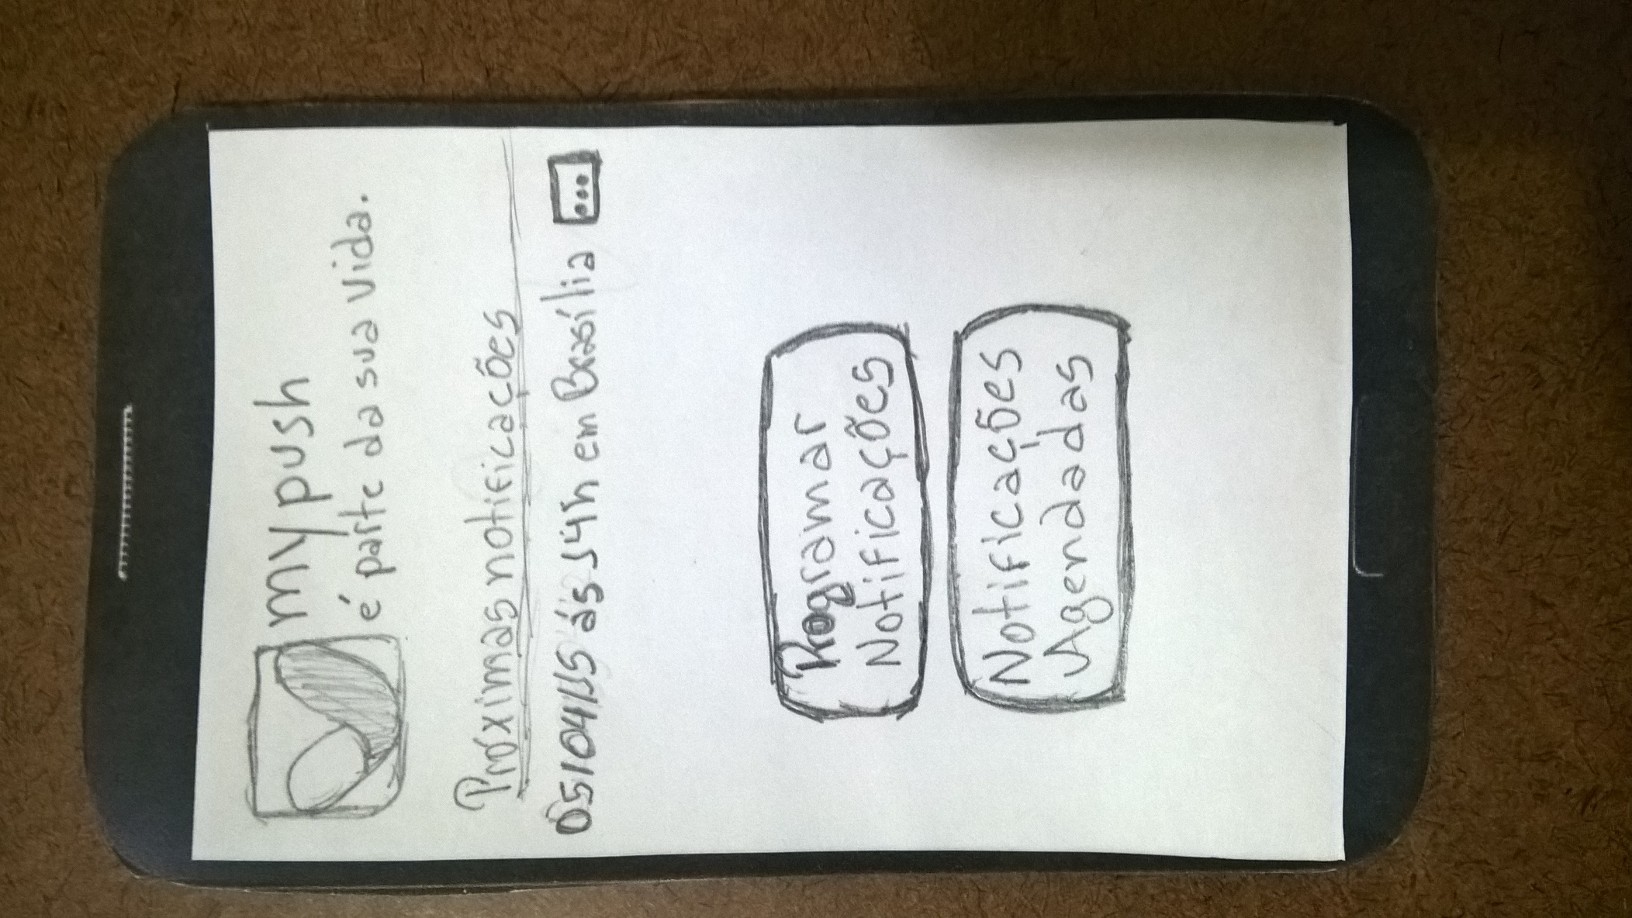 my push
é parte da sua vida.
Próximas notificações
05/04/15 ás 14h em Brasília ...
Programar
Notificações
Notificações
Agendadas